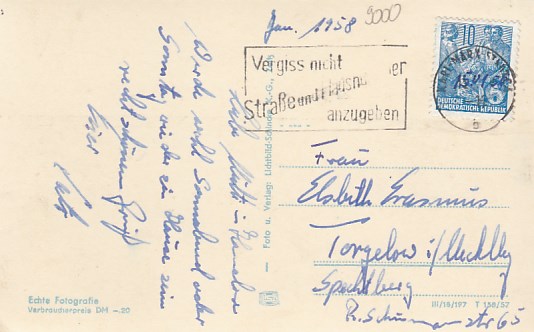 Jan. 1958
9000
Vergiss nicht
Straße und Hausnummer
anzugeben
10
DEUTSCHE
DEMOKRATISCHE REPUBLIK
b
Werde wohl Sonnabend oder
Sonntag wieder ein Hause sein
recht schönen Gruß
Euer Vater
Foto u. Verlag: Lichtbild
Frau
Elsbeth Erasmus
Torgelow i/Mecklbg
Spechtberg
R. Schumann str 65
Echte Fotografie
Verbraucherpreis DM -.20
III/18/197 T 158/57